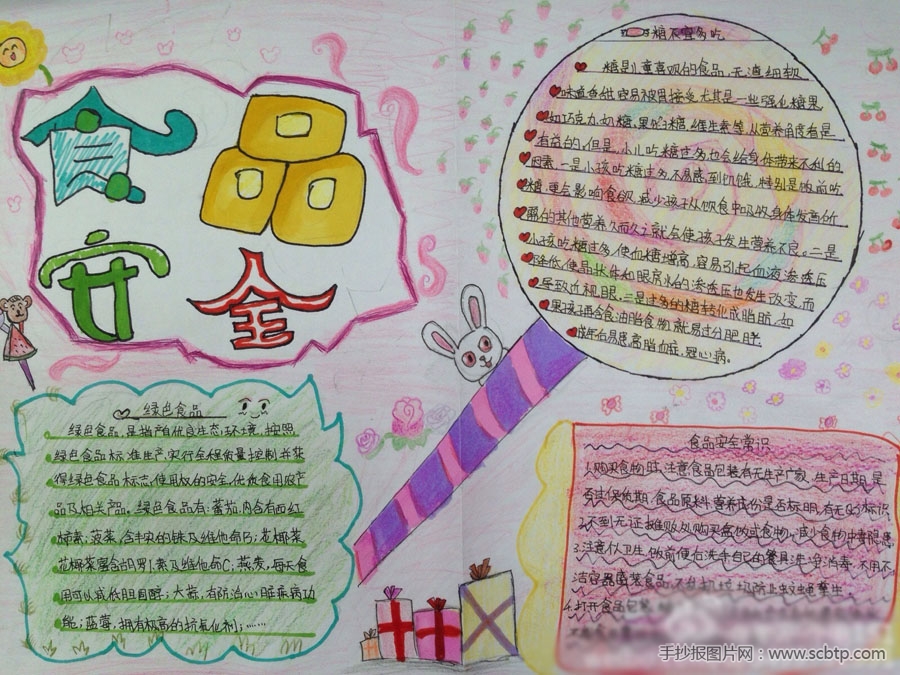 食品
安全
绿色食品
绿色食品,是指产自优良生态环境,按照
绿色食品标准生产,实行全程质量控制并获
得绿色食品标志使用权的安全,优质食用农产
品及相关产品。绿色食品有:蕃茄,内含有茄红
柿素;菠菜,含丰富的铁及维他命B;花椰菜
花椰菜富含胡萝卜素及维他命C;燕麦,每天食
用可以减低胆固醇;大蒜,有防治心脏疾病功
能;蓝莓,拥有极高的抗氧化剂;……
糖不宜多吃
糖是儿童喜欢的食品,无渣细软
味道香甜容易被胃接受尤其是一些强化糖果
如巧克力,奶糖,果汁糖,维生素等,从营养角度看是
有益的,但是,小儿吃糖过多也会给身体带来不利的
因素,一是小孩吃糖过多不易感到饥饿,特别是饭前吃
糖,更会影响食欲,减少孩子从饮食中吸收身体发育所
需的其他营养久而久之就会使孩子发生营养不良。二是
小孩吃糖过多,使血糖增高,容易引起血液渗透压
降低,使晶状体和眼房水的渗透压也发生改变,而
导致近视眼,三是过多的糖转化成脂肪,如
果孩子再会食油脂食物就易过分肥胖
成年后易患高脂血症,冠心病。
食品安全常识
1.购买食物时,注意食品包装有无生产厂家,生产日期,是
否过保质期,食品原料,营养成份是否标明,有无QS标识
2.不到无证摊贩处购买盒饭或食物,减少食物中毒隐患
3.注意个人卫生,饭前便后洗手自己的餐具洗净消毒,不用不
洁容器盛装食品,不乱扔垃圾防止蚊蝇孳生
4.打开食品包装
手抄报图片网:www.scbtp.com